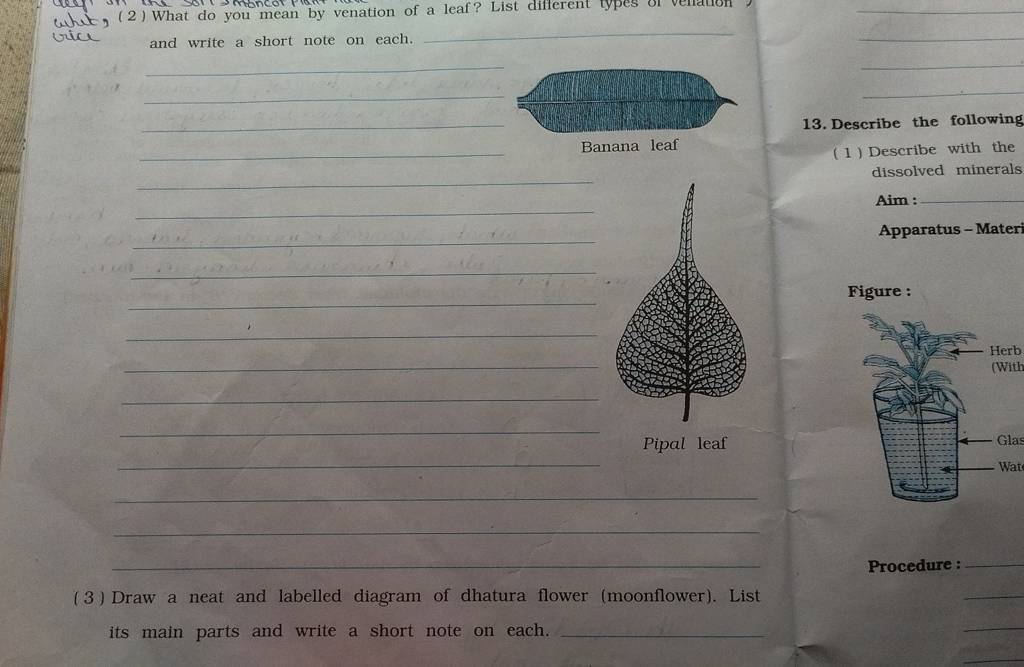 (2) What do you mean by venation of a leaf? List different types of venation
and write a short note on each.
Banana leaf
Pipal leaf
(3) Draw a neat and labelled diagram of dhatura flower (moonflower). List
its main parts and write a short note on each.
13. Describe the following
(1) Describe with the
dissolved minerals
Aim :
Apparatus – Materi
Figure :
Herb
(With
Glas
Wate
Procedure :